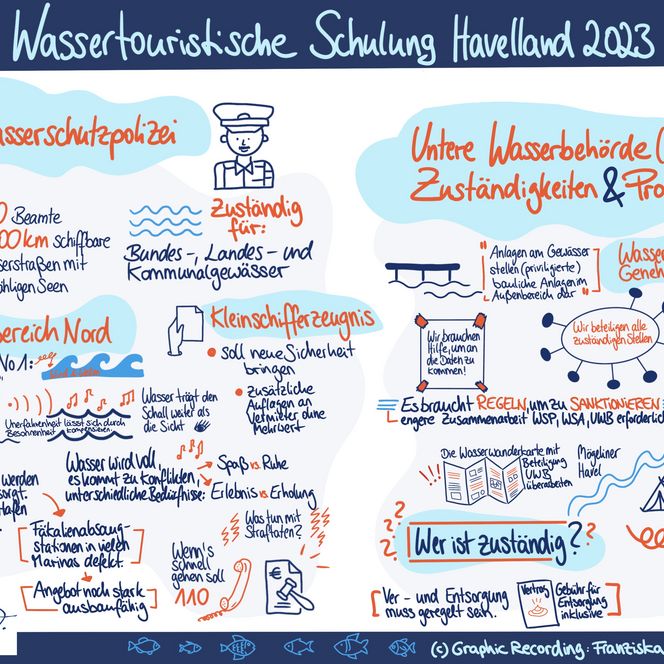 Wassertouristische Schulung Havelland 2023
asserschutzpolizei
0 Beamte
00 km schiffbare
serstraßen mit
öhligen Seen
Zuständig
für:
Bundes-, Landes- und
Kommunalgewässer
ereich Nord
No 1:
Wind & Wellen
Unerfahrenheit lässt sich durch
Besonnenheit kompensieren
Wasser trägt den
Schall weiter als
die Sicht
Kleinschifferzeugnis
soll neue Sicherheit
bringen
zusätzliche
Auflagen an
Vermieter ohne
Mehrwert
Wasser wird voll
es kommt zu Konflikten,
unterschiedliche Bedürfnisse:
Spaß vs. Ruhe
Erlebnis vs. Erholung
werden
sorgt.
tafen
Fäkalienabsaug-
stationen in vielen
Marinas defekt.
Angebot noch stark
ausbaufähig
Was tun mit
Straftaten?
Wenn's
schnell
gehen soll
110
Untere Wasserbehörde (
Zuständigkeiten & Pro
"Anlagen am Gewässer
stellen (priviligierte)
bauliche Anlagen im
Außenbereich dar"
Wasser
Geneh
Wir brauchen
Hilfe, um an
die Daten zu
kommen!
Wir beteiligen alle
zuständigen Stellen
Es braucht REGELN, um zu SANKTIONIEREN
engere Zusammenarbeit WSP, WSA, UWB erforderlic
Die Wasserwanderkarte mit
Beteiligung
UWB
überarbeiten
Mögeliner
Havel
Wer ist zuständig?
Ver- und Entsorgung
muss geregelt sein.
Vertrag
Gebühr für
Entsorgung
inklusive
(c) Graphic Recording: Franziska